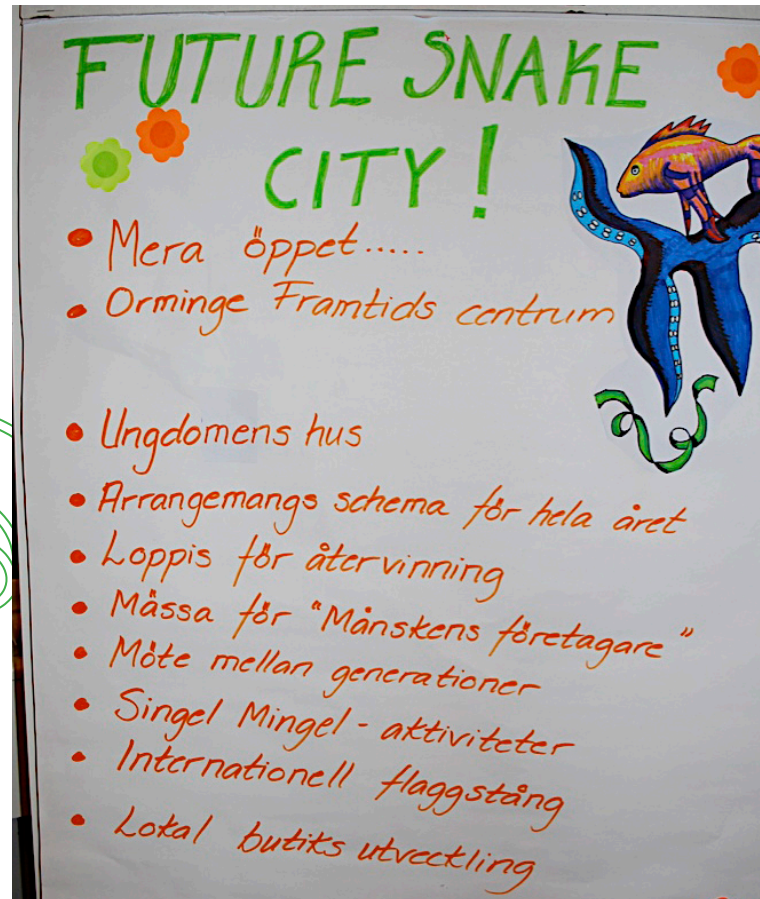 FUTURE SNAKE
CITY!
• Mera öppet.....
• Orminge Framtids centrum
• Ungdomens hus
• Arrangemangs schema för hela året
• Loppis för återvinning
• Mässa för "Månskens företagare"
• Möte mellan generationer
• Singel Mingel - aktiviteter
• Internationell flaggstång
• Lokal butiks utveckling